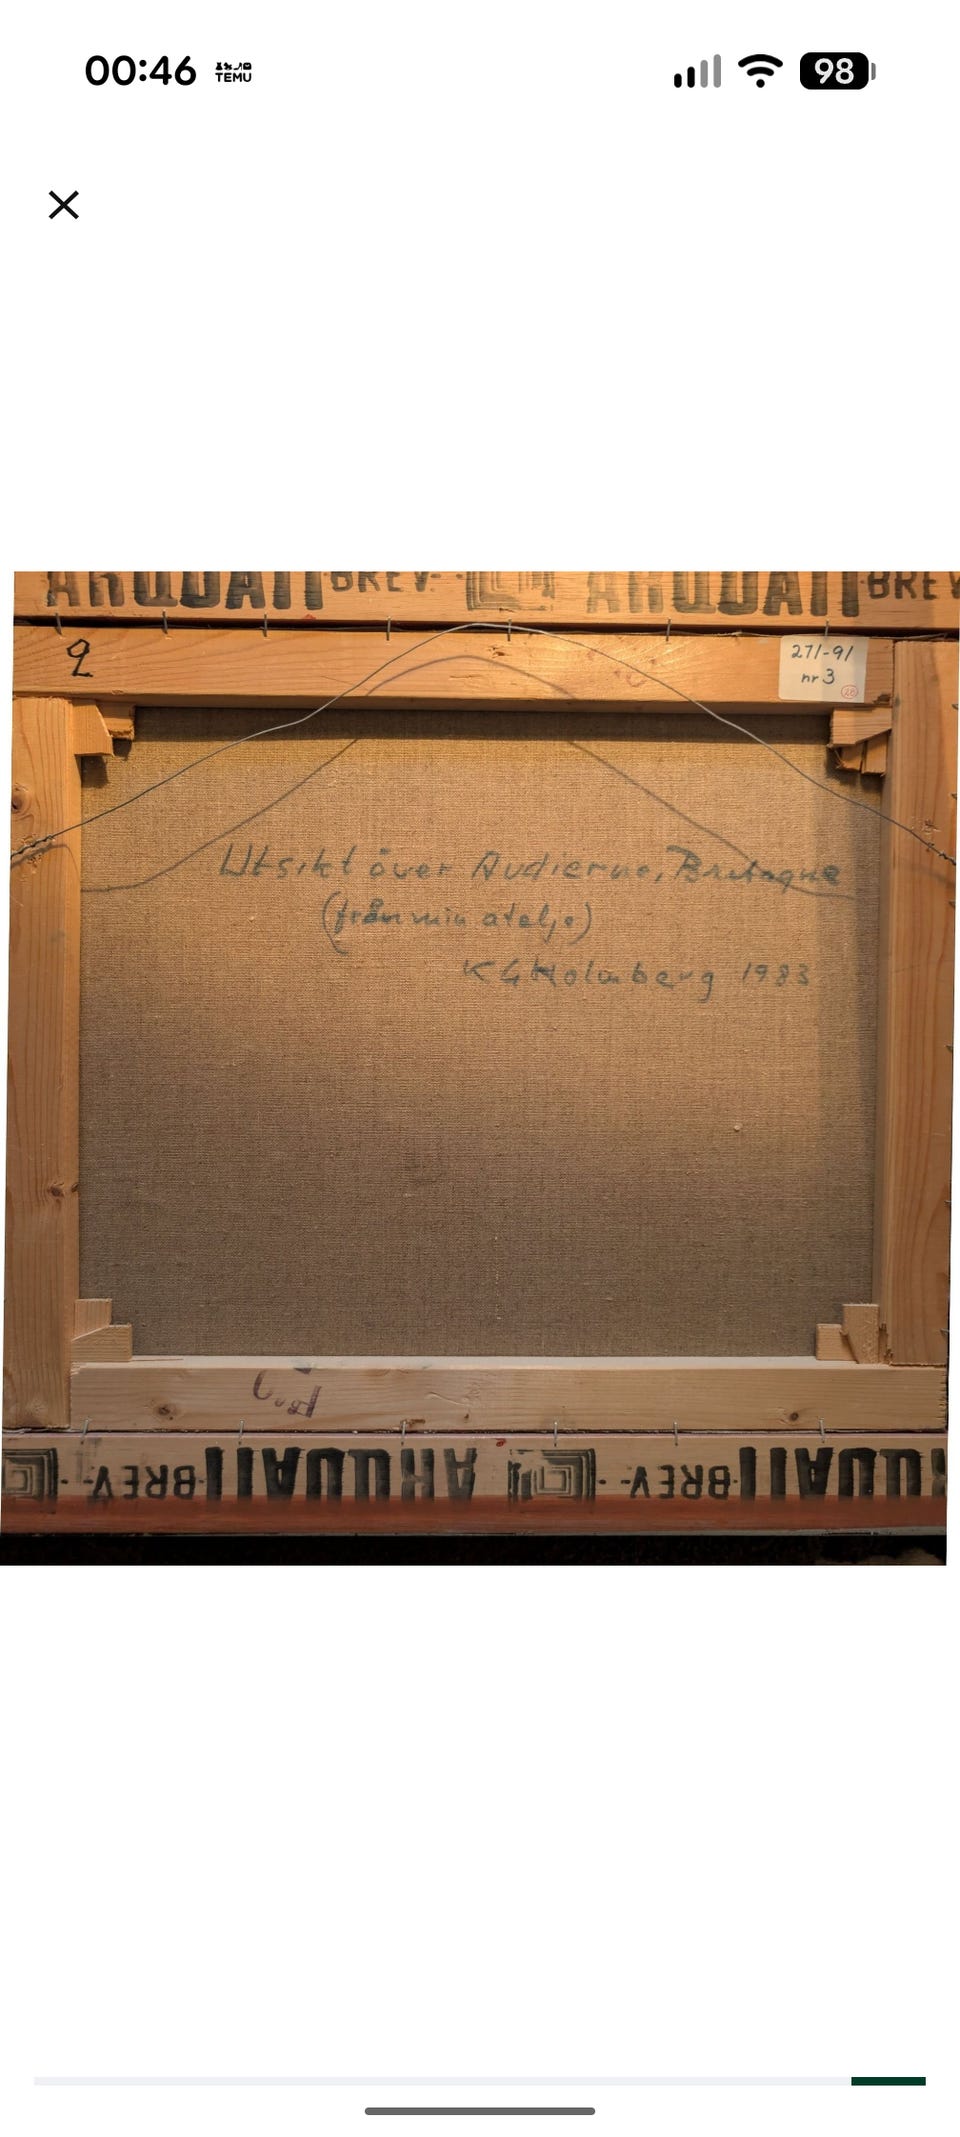 00:46
TEMU
98
ARQUATI BREV. ARQUATI BREV
2
271-91
nr 3
28
Utsikt över Audierne, Bretagne
(från min atelje)
K G Holmberg 1983
BREV ARQUATI BREV ARQUATI